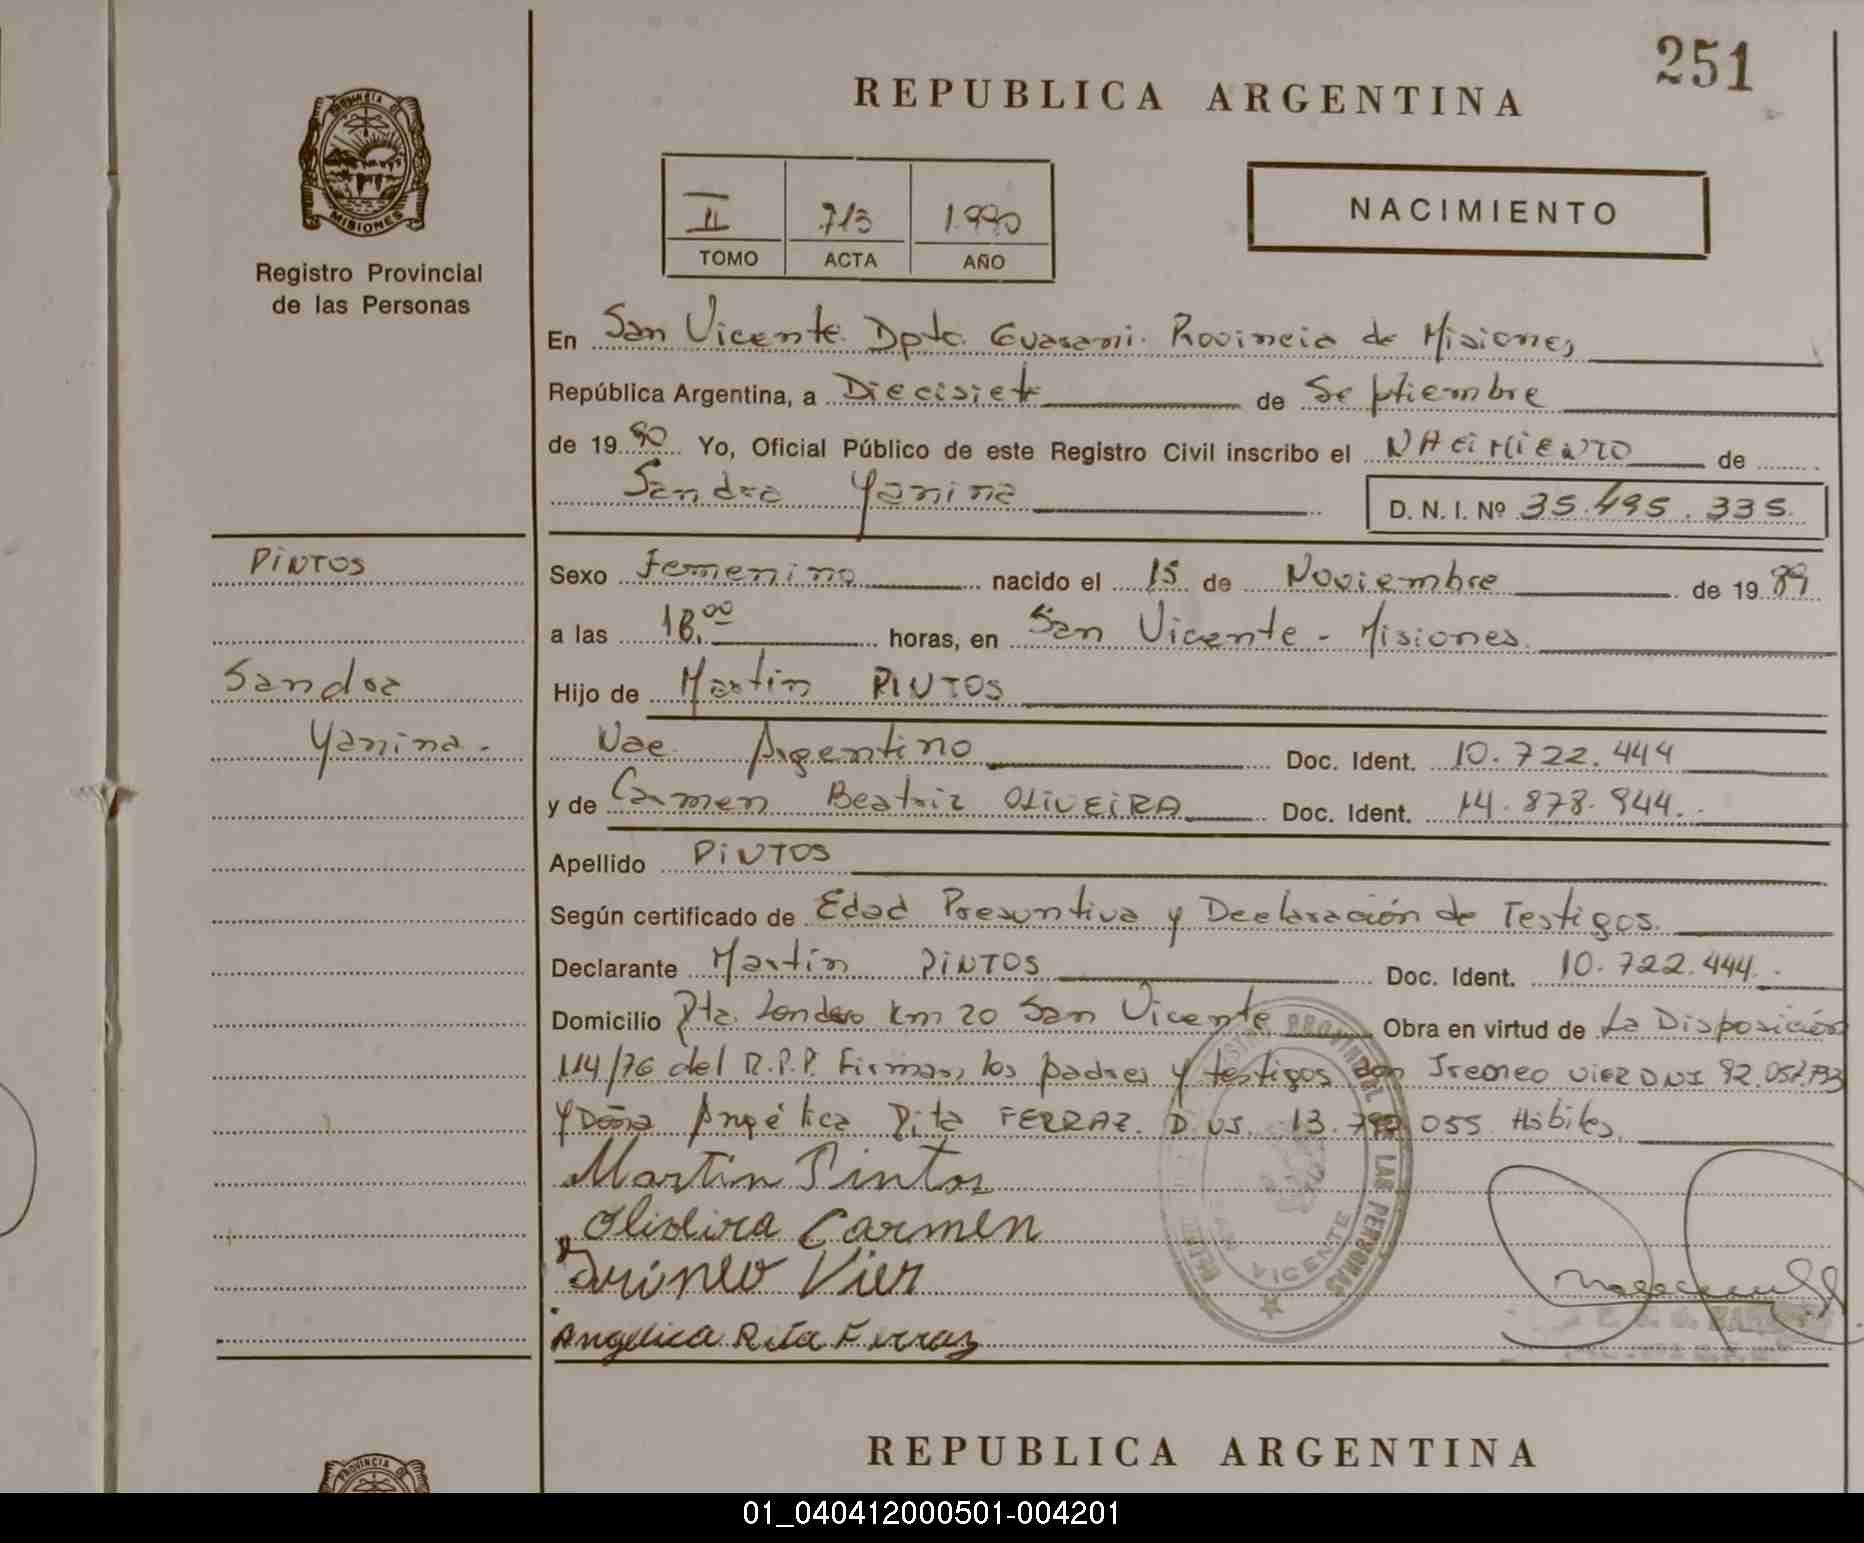 251
REPUBLICA ARGENTINA
PROVINCIA DE
MISIONES
Registro Provincial
de las Personas
II 713 1.990
TOMO ACTA AÑO
NACIMIENTO
En San Vicente. Dpto. Guarani. Provincia de Misiones
República Argentina, a Diecisiete de Septiembre
de 1990 Yo, Oficial Público de este Registro Civil inscribo el NACIMIENTO de
Sandra Yanina D. N. I. Nº 35.495.335.
PINTOS
Sandra
Yanina.-
Sexo Femenino nacido el 15 de Noviembre de 1989
a las 18.00 horas, en San Vicente - Misiones.
Hijo de Martin PINTOS
Nac. Argentino Doc. Ident. 10.722.444
y de Carmen Beatriz OLIVEIRA Doc. Ident. 14.878.944.
Apellido PINTOS
Según certificado de Edad Presuntiva y Declaración de Testigos.
Declarante Martin PINTOS Doc. Ident. 10.722.444.
Domicilio Km 20 San Vicente Obra en virtud de La Disposición
114/76 del R.P.P. Firman los padres y testigos don Ireneo VIER DNI
y Doña Angélica Rita FERRAZ. 055 Hábiles.
Martin Pintos
Oliveira Carmen
Irineo Vier
Angelica Rita Ferraz
VICENTE
REPUBLICA ARGENTINA
PROVINCIA DE
01_040412000501-004201